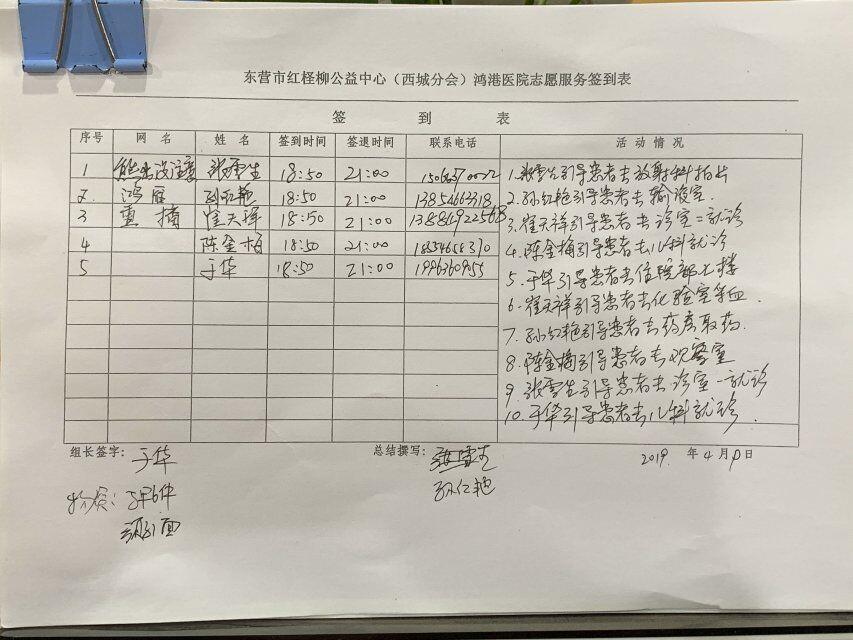 东营市红柽柳公益中心（西城分会）鸿港医院志愿服务签到表
签 到 表
序号 网 名 姓 名 签到时间 签退时间 联系电话 活 动 情 况
1 张雪生 18:50 21:00
2. 鸿雁 孙红艳 18:50 21:00 13854663318
3 崔天祥 18:50 21:00
4 陈金梅 18:50 21:00
5 于华 18:50 21:00
1. 张雪生引导患者去放射科拍片
2. 孙红艳引导患者去输液室.
3. 崔天祥引导患者去诊室二就诊
4. 陈金梅引导患者去儿科就诊
5. 于华引导患者去住院部七楼
6. 崔天祥引导患者去化验室等血.
7. 孙红艳引导患者去药房取药.
8. 陈金梅引导患者去观察室
9. 张雪生引导患者去诊室一就诊
10. 于华引导患者去儿科就诊.
组长签字： 于华 总结撰写： 张雪生 2019. 年 4 月 日
孙红艳
物资： 马甲6件
一面